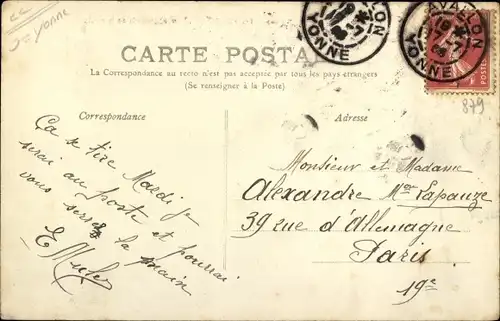 Yonne
CARTE POSTALE
La Correspondance au recto n'est pas acceptée par tous les pays étrangers
(Se renseigner à la Poste)
AVALLON
YONNE
AVALLON
YONNE
POSTES
879
Correspondance
Adresse
Ça se tire Mardi je
serai au poste et pourrai
vous serrer la main
E
Monsieur et Madame
Alexandre Lapauze
39 rue d'Allemagne
Paris
19e